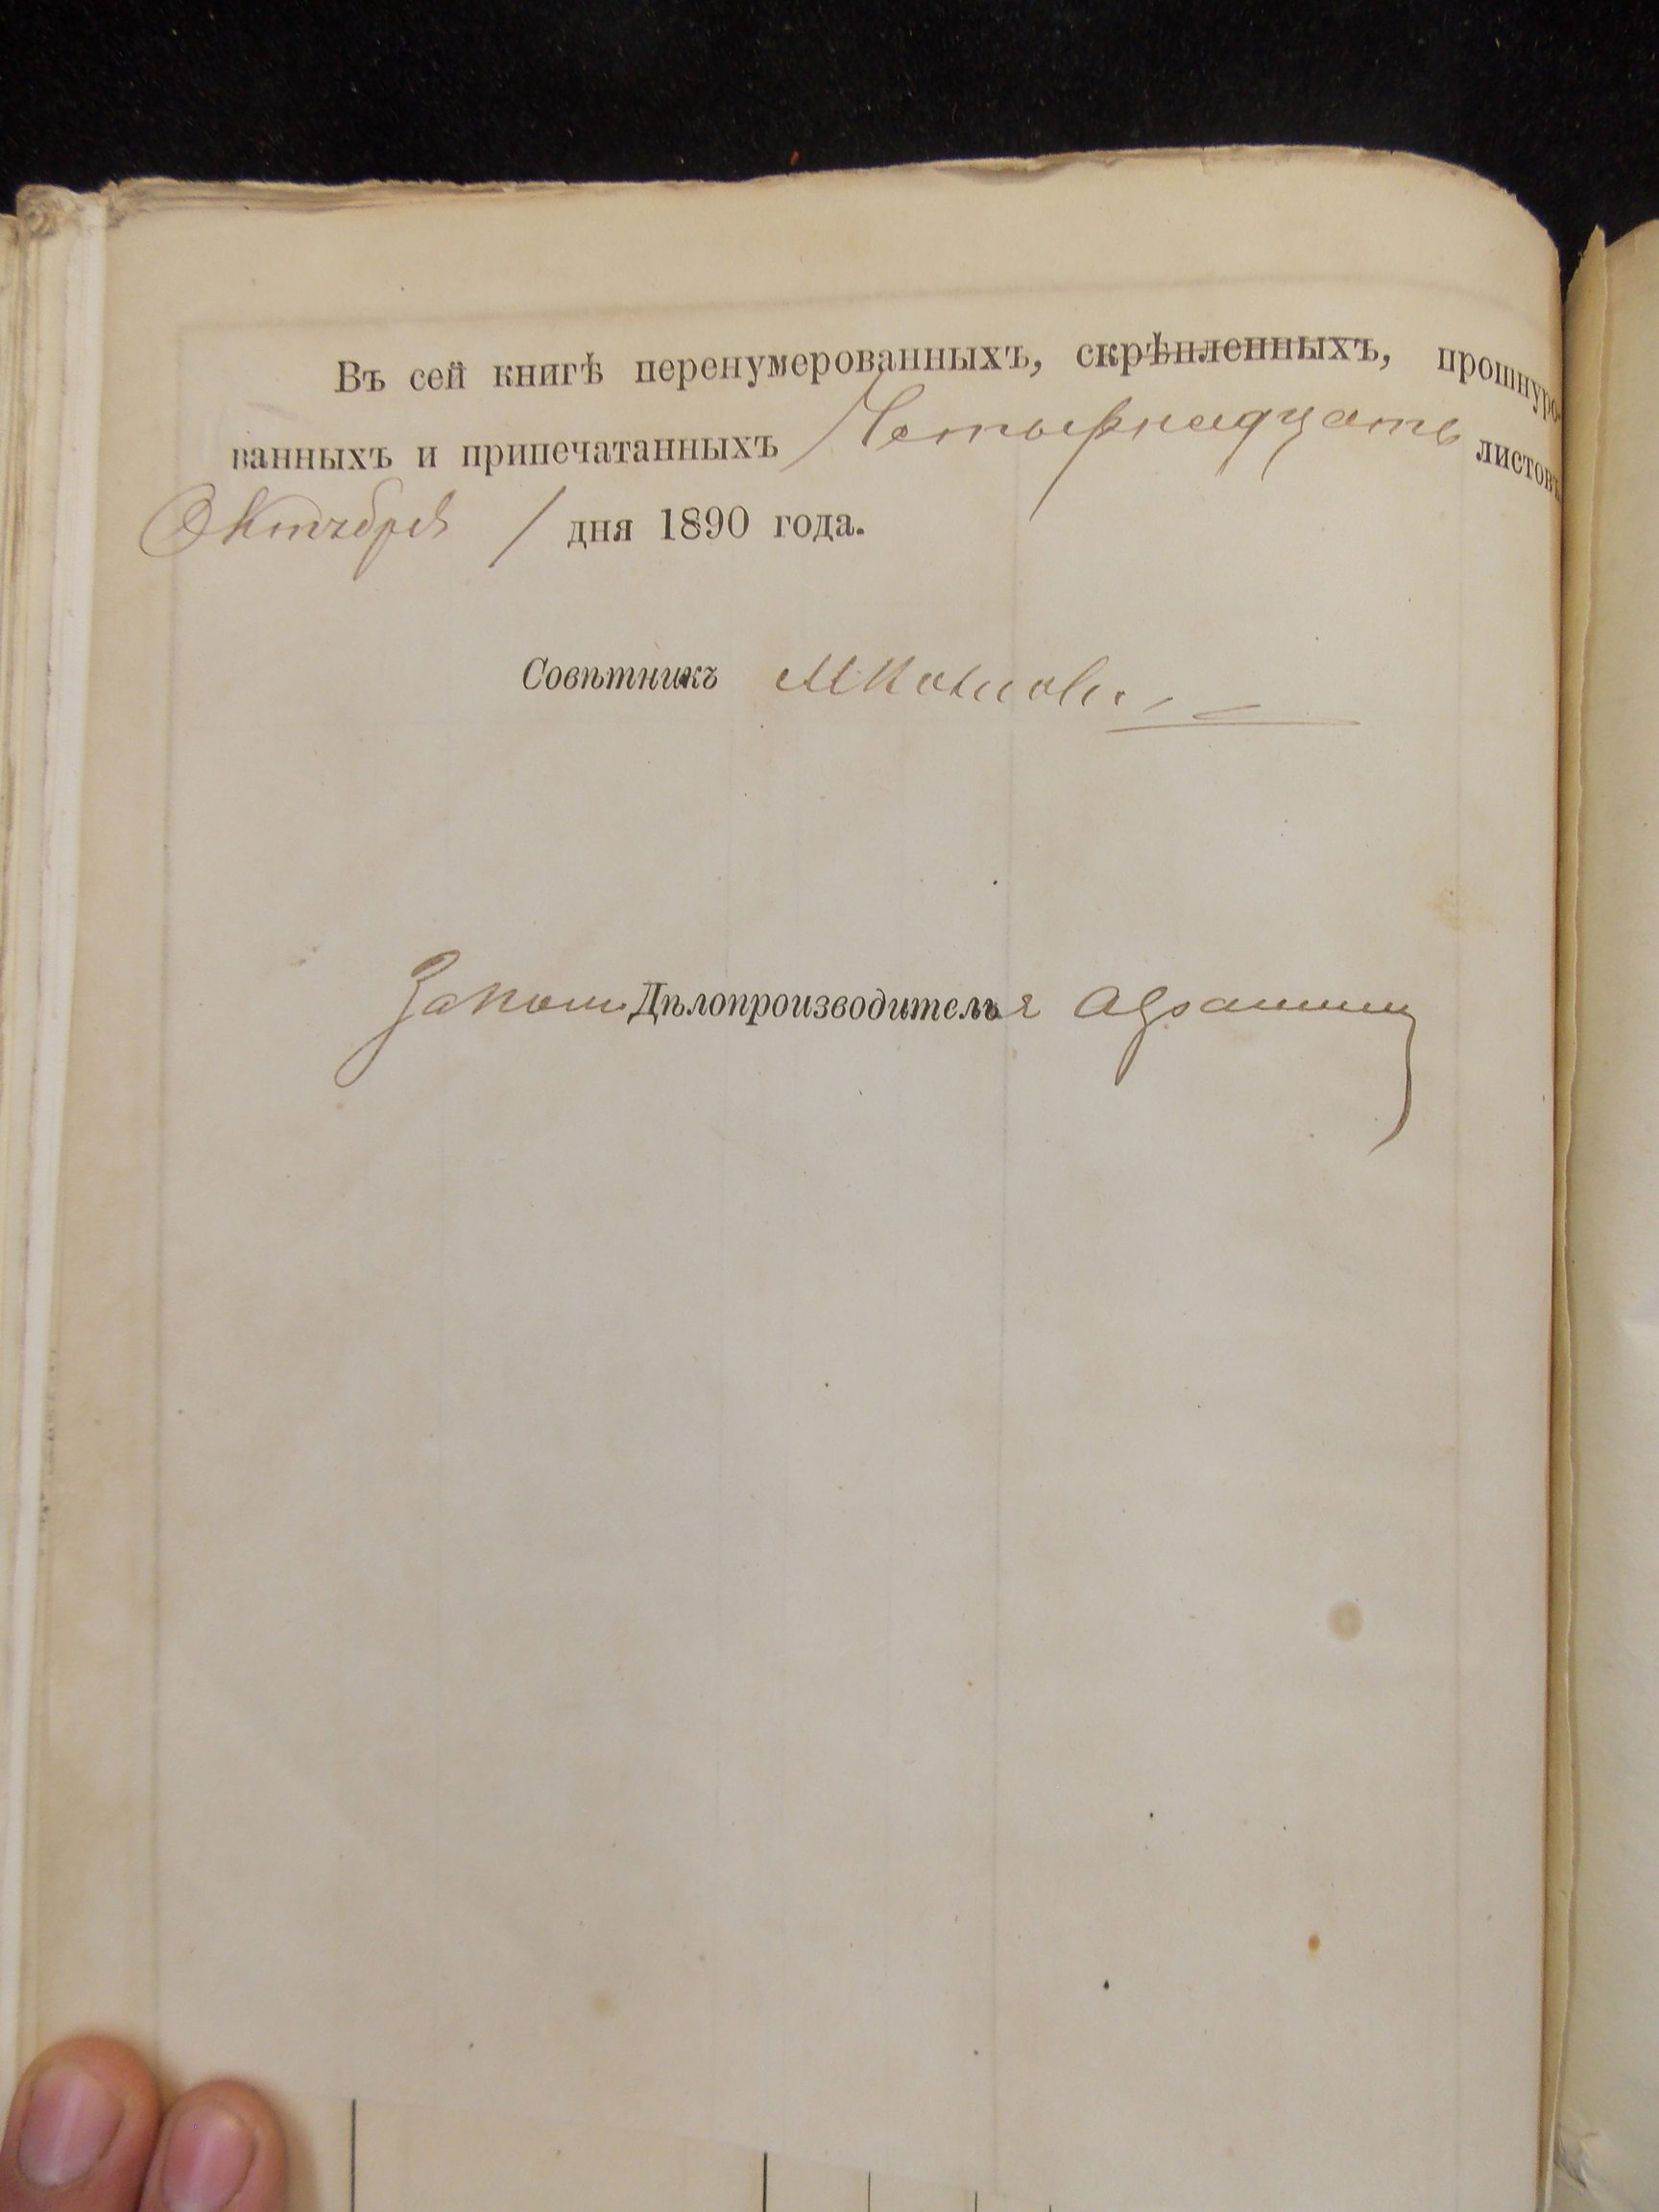 Въ сей книгѣ перенумерованныхъ, скрѣпленныхъ, прошнуро-
ванныхъ и припечатанныхъ Четырнадцать листовъ
Октября 1 дня 1890 года.
Совѣтникъ
За Дѣлопроизводителя